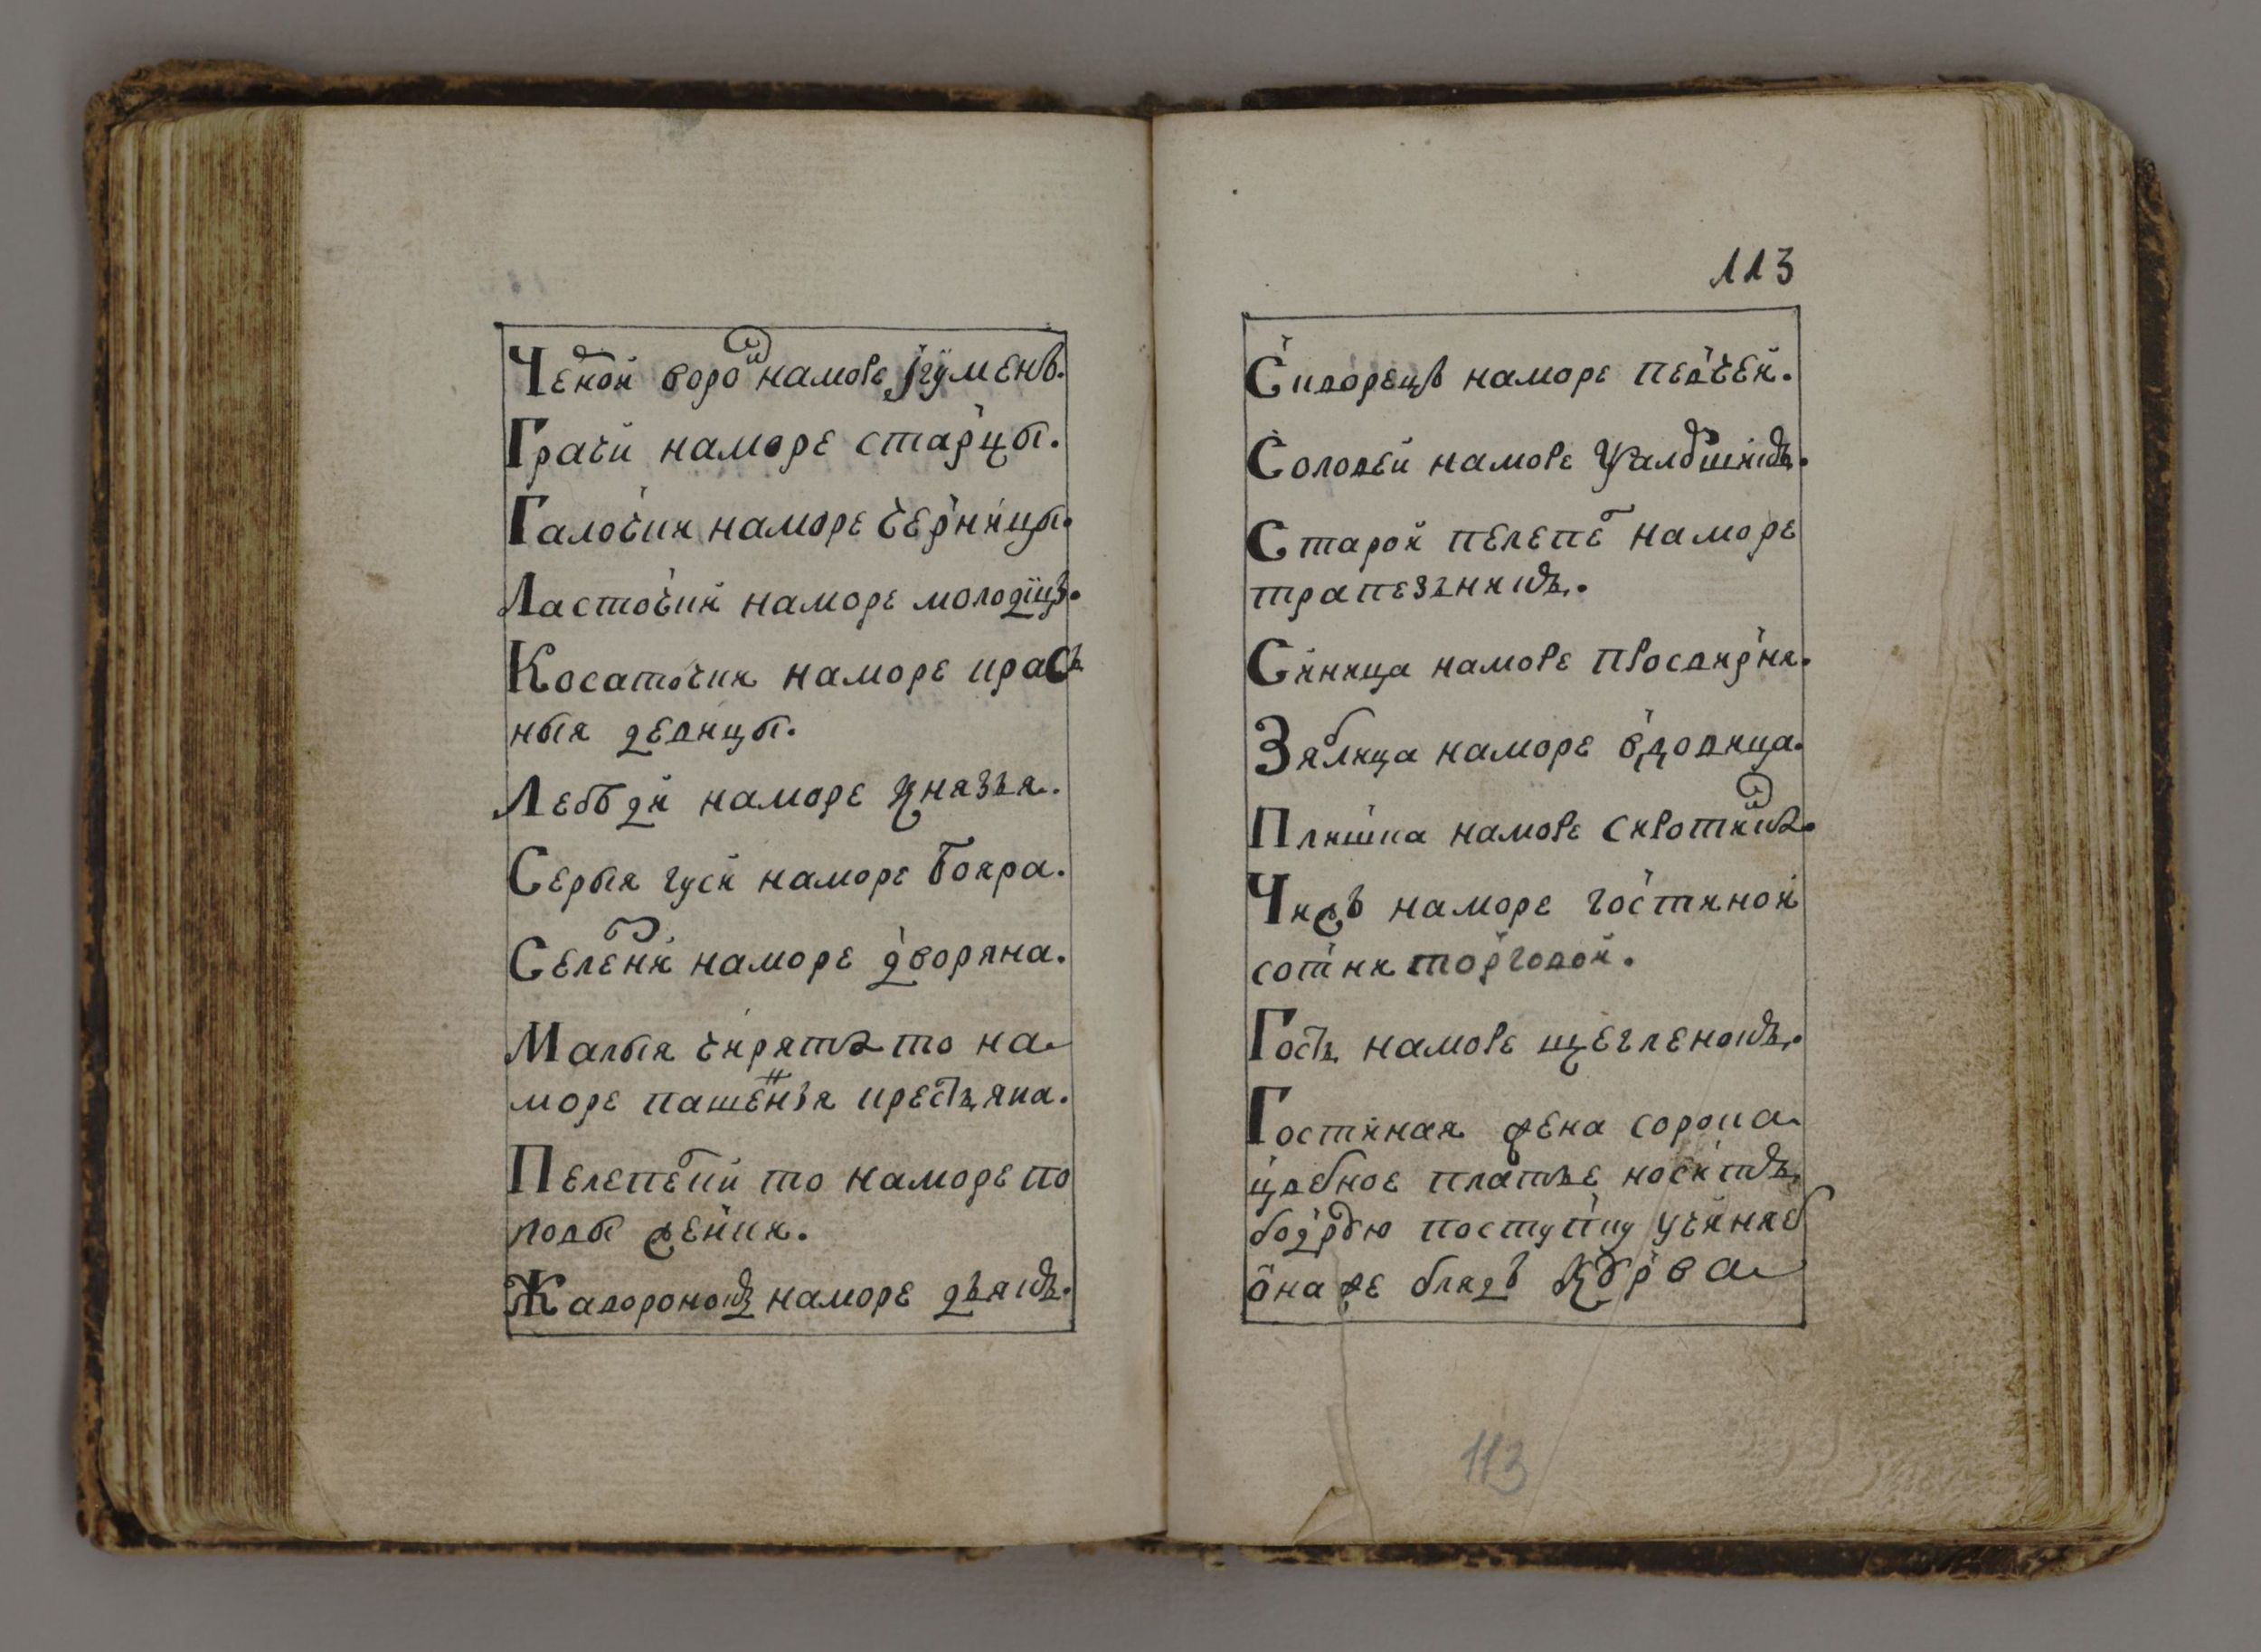 Черной воронъ наморе игуменъ.
Грачи наморе старцы.
Галочки наморе черницы.
Ласточки наморе молодицы.
Косаточки наморе крас
ныя девицы.
Лебеди наморе князья.
Серыя гуси наморе бояра.
Селезни наморе дворяна.
Малыя чирятка то на
море пашенныя крестьяна.
Перепелки то наморе по
повы женки.
Жавороножъ наморе дьякъ.
113
Скворецъ наморе певчей.
Соловей наморе псалмшикъ.
Старой пелепел наморе
трапезьникъ.
Синица наморе просвирня.
Зяблица наморе вдовица.
Плишка наморе сиротинка.
Чижъ наморе гостиной
сотни торговой.
Гость наморе щегленокъ.
Гостиная жена сорока
цвебное платье носитъ
бодрою поступку учиняеъ
она же блядь курва
113